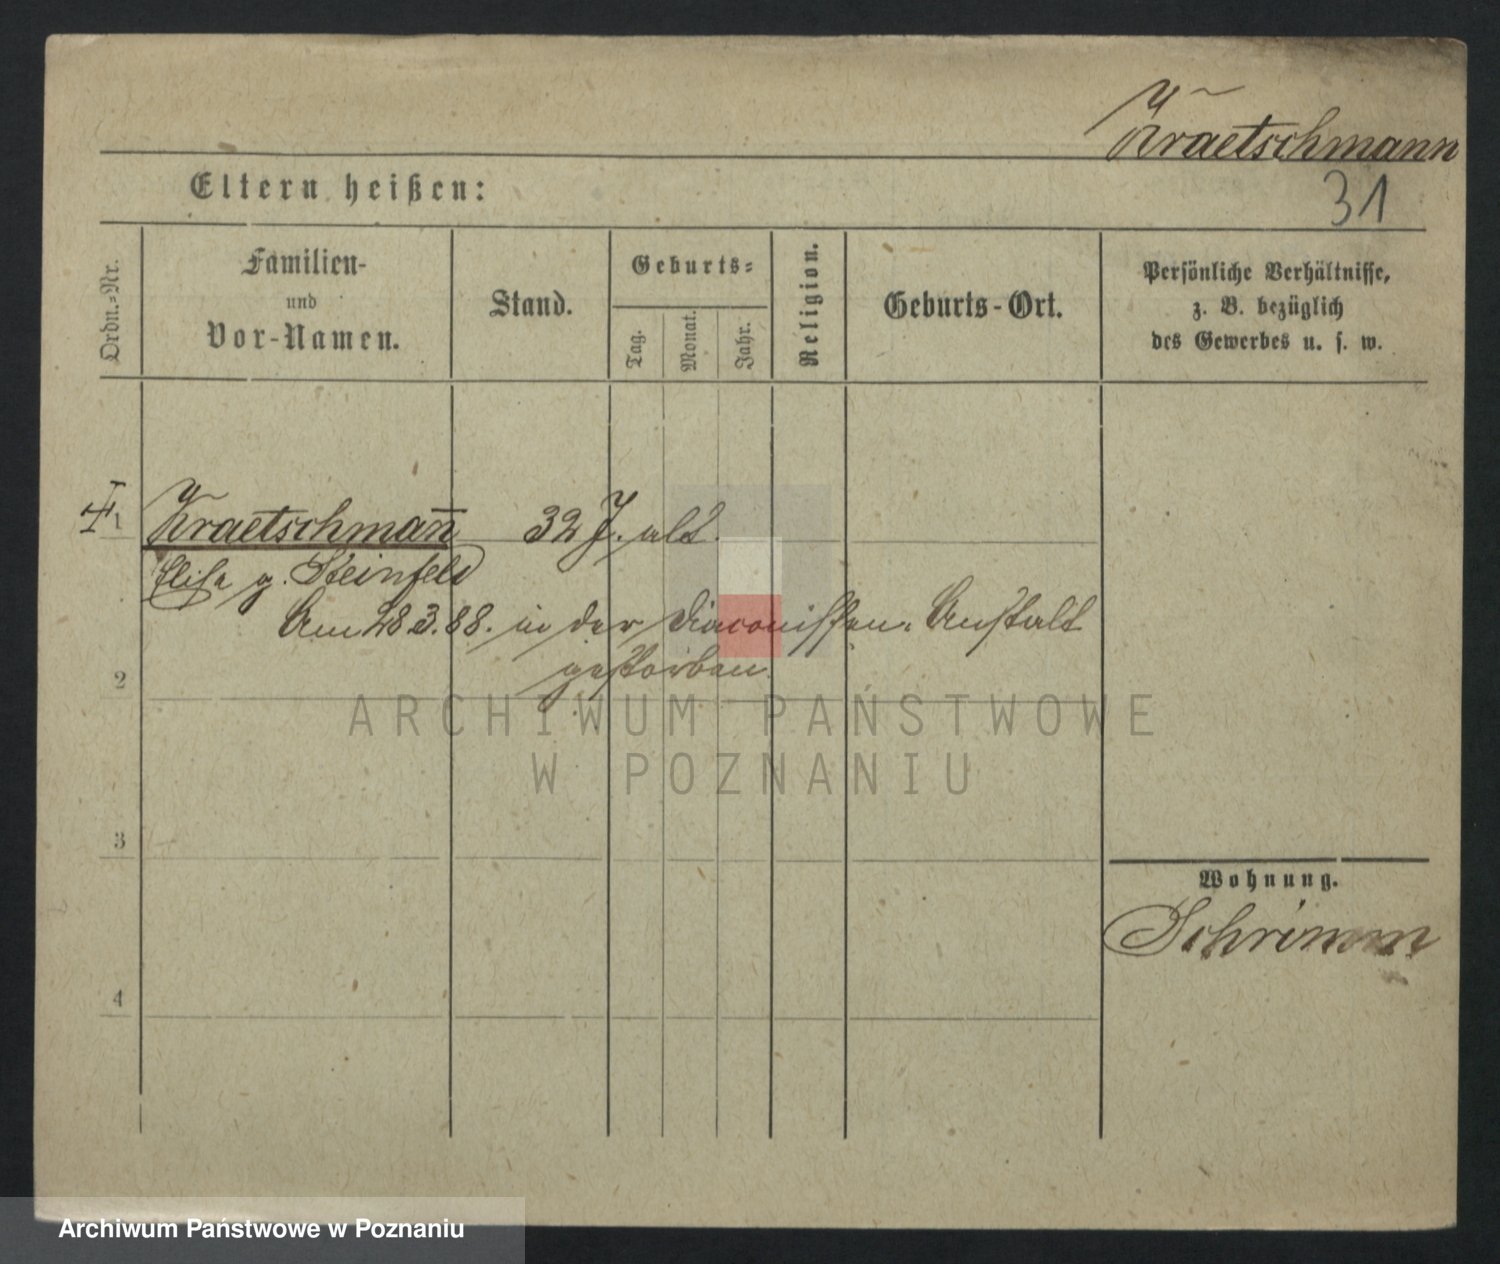 Kraetschmann
31
Eltern heißen:
Ordn.-Nr.
Familien-
und
Vor-Namen.
Stand.
Geburts-
Tag.
Monat.
Jahr.
Religion.
Geburts-Ort.
Persönliche Verhältnisse,
z. B. bezüglich
des Gewerbes u. s. w.
1 Kraetschman̅ 32 J. alt.
Elise g. Steinfeld
Am 28.3.88. in der Diaconissen-Anstalt
gestorben.
2
ARCHIWUM PAŃSTWOWE
W POZNANIU
3
Wohnung.
Schrimm
4
Archiwum Państwowe w Poznaniu